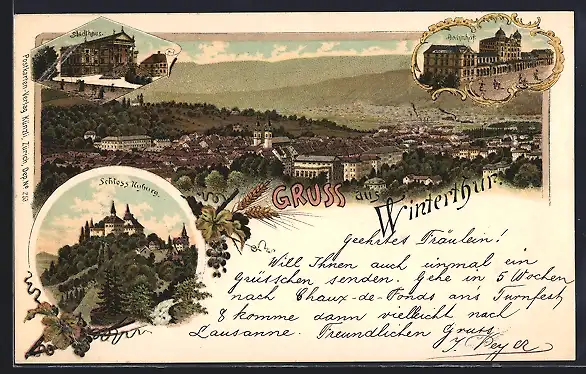 Stadthaus.
Bahnhof.
Postkarten-Verlag Künzli, Zürich, Dep. № 213
Schloss Kyburg.
GRUSS aus Winterthur.
Geehrtes Fräulein!
Will Ihnen auch einmal ein
Grüsschen senden. Gehe in 5 Wochen
nach Chaux-de-Fonds ans Turnfest
& komme dann vielleicht nach
Lausanne. Freundlichen Gruss